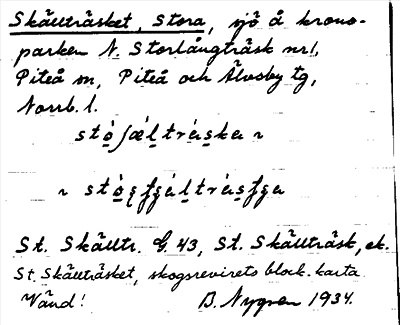 Skälträsket, Stora, sjö å krono-
parken N. Storlångträsk nr 1,
Piteå sn, Piteå och Älvsby tg,
Norrb. l.
St. Skälltr. G. 43, St. Skällträsk, ek.
St. Skällträsket, skogsrevirets block. karta
Vänd! B. Nygren 1934.